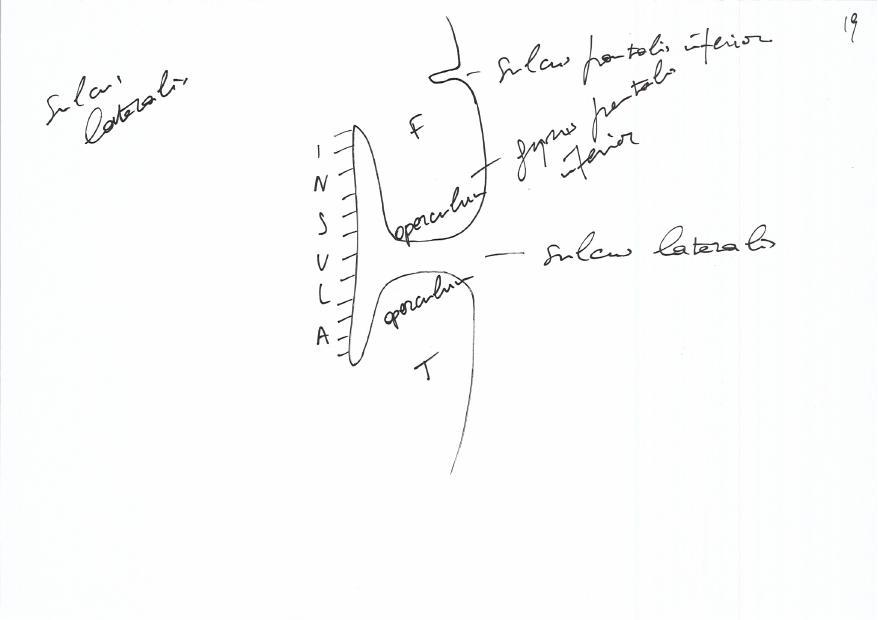 19
sulcus
lateralis
sulcus frontalis inferior
F
gyrus frontalis
inferior
operculum
INSULA
sulcus lateralis
operculum
T